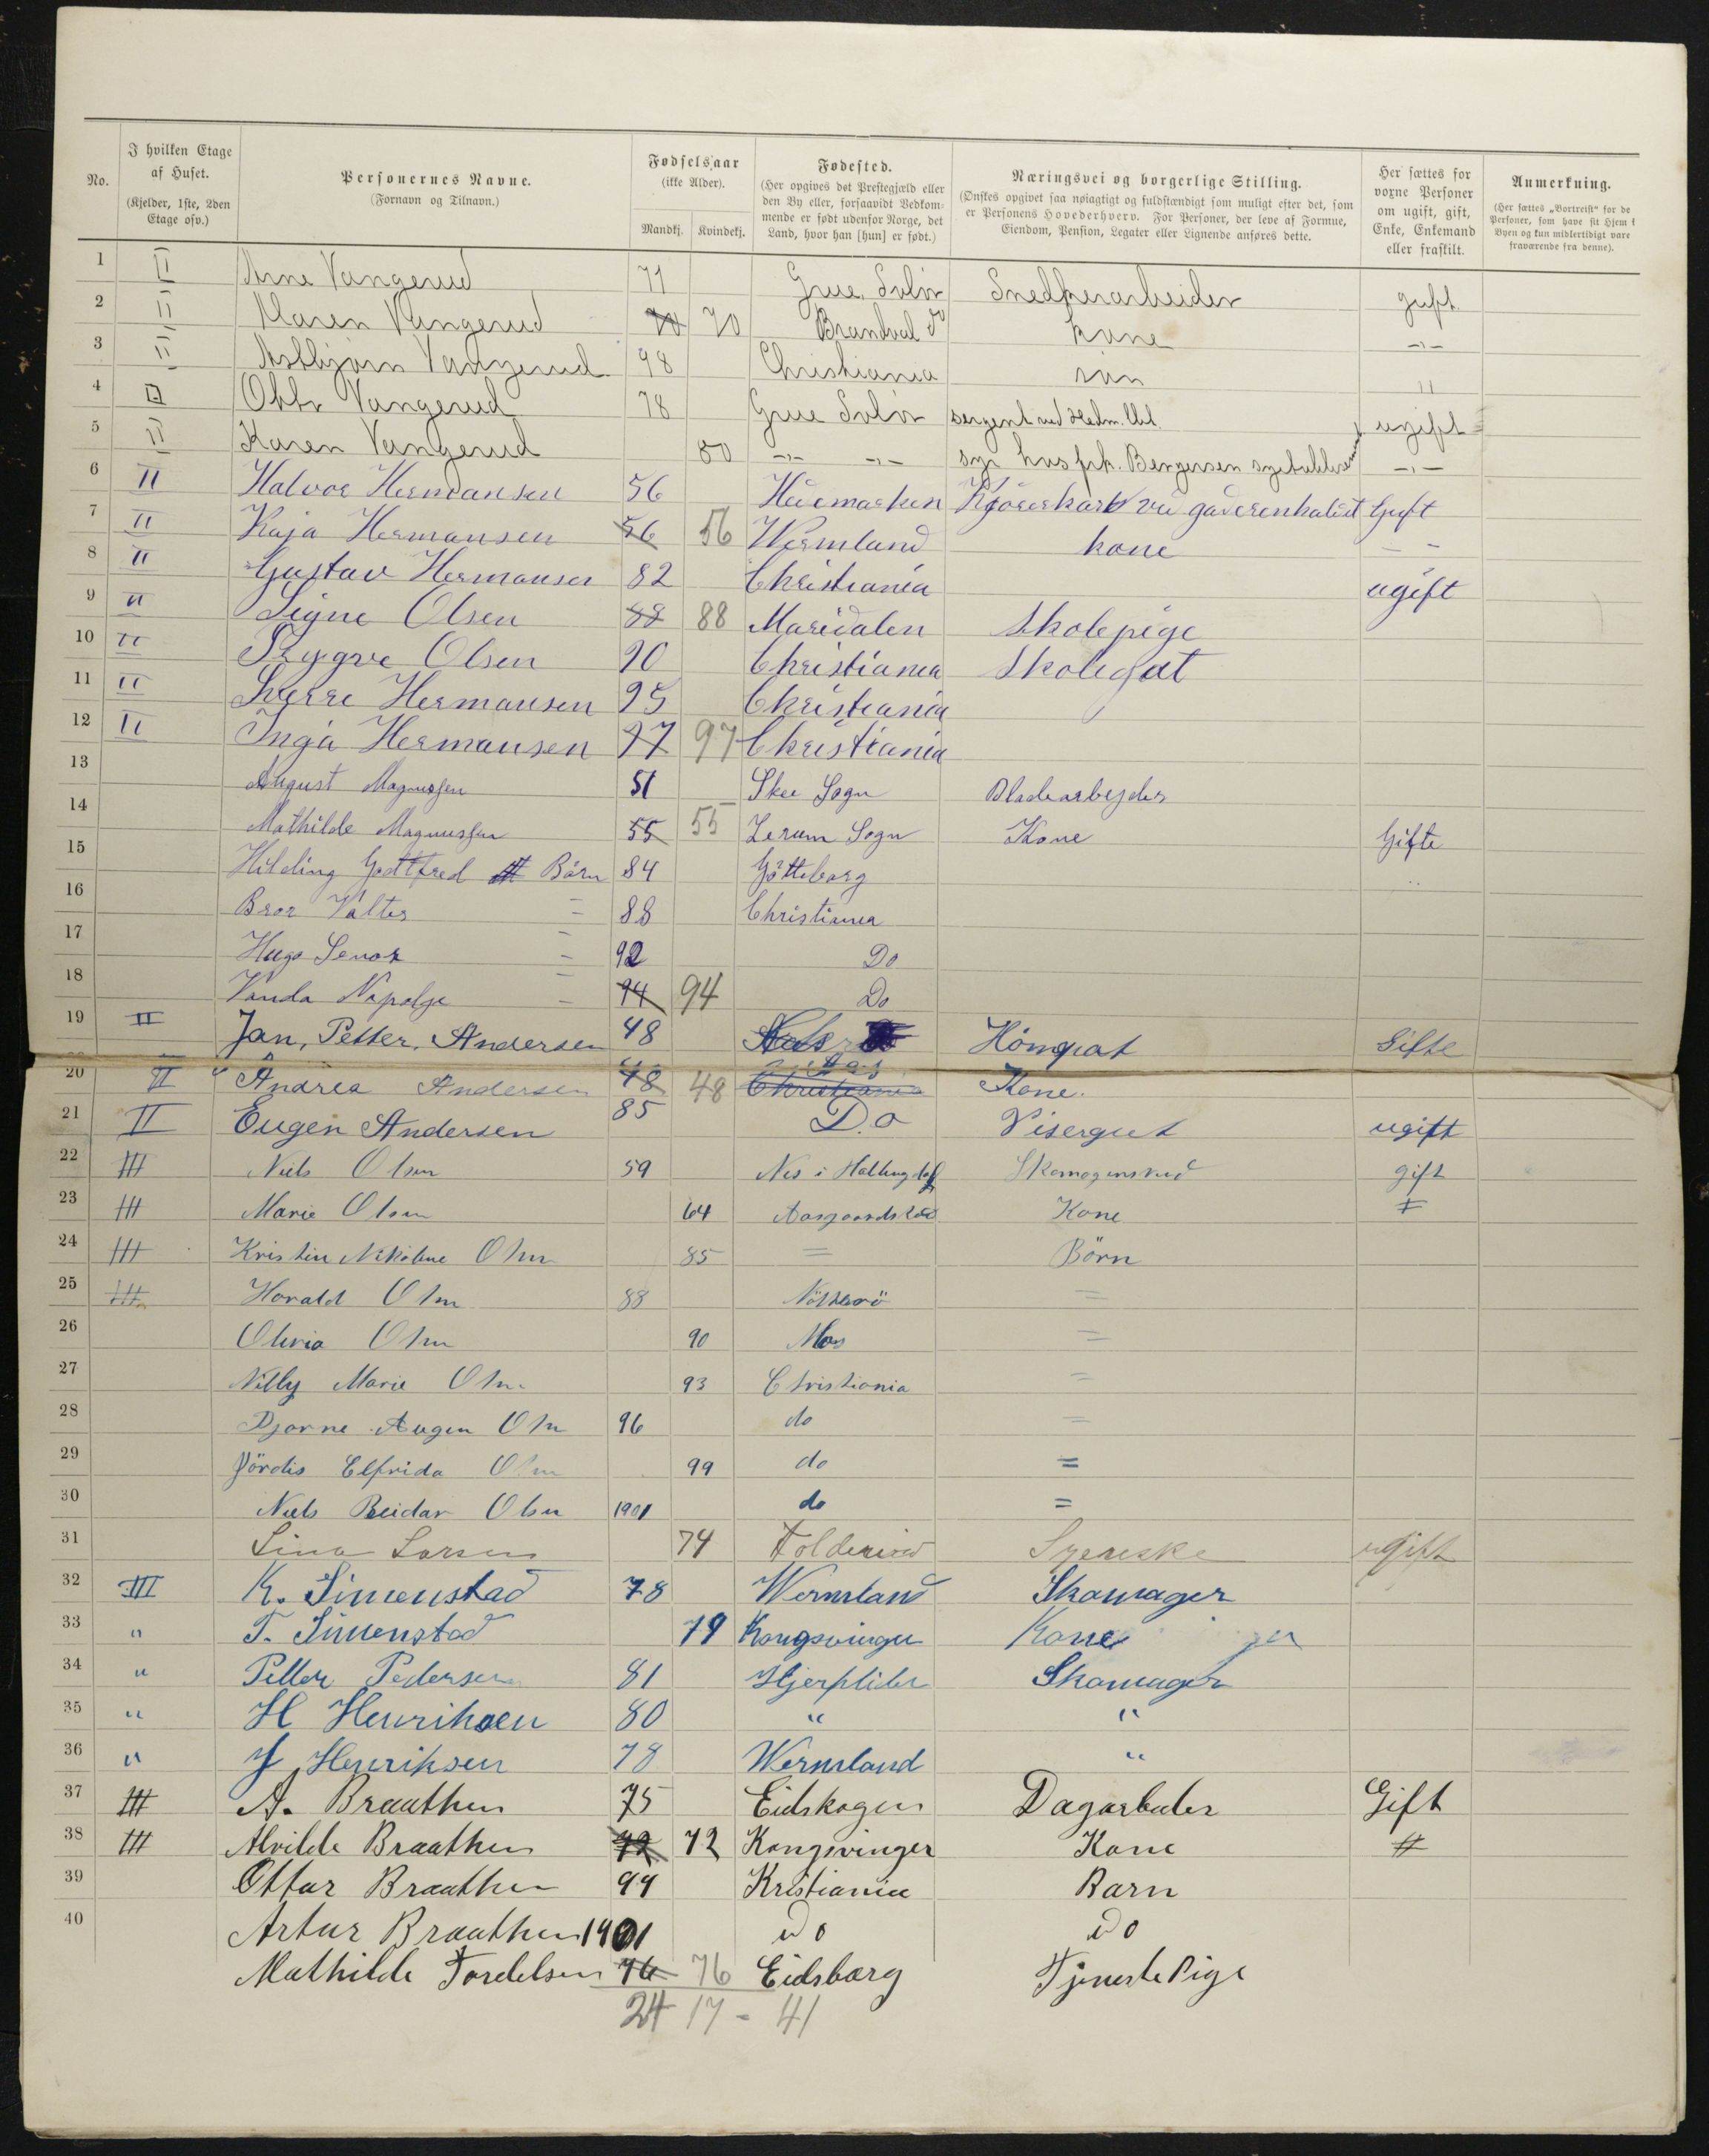 No. | I hvilken Etage af Huset. (Kjelder, 1ste, 2den Etage osv.) | Personernes Navne. (Fornavn og Tilnavn.) | Fødselsaar (ikke Alder). Mandkj. Kvindekj. | Fødested. (Her opgives det Prestegjæld eller den By eller, forsaavidt Vedkommende er født udenfor Norge, det Land, hvor han [hun] er født.) | Næringsvei og borgerlige Stilling. (Ønskes opgivet saa nøiagtigt og fuldstændigt som muligt efter det, som er Personens Hovederhverv. For Personer, der leve af Formue, Eiendom, Pension, Legater eller Lignende anføres dette.) | Her sættes for voxne Personer om ugift, gift, Enke, Enkemand eller fraskilt. | Anmerkning. (Her sættes „Bortreist“ for de Personer, som have sit Hjem i Byen og kun midlertidigt vare fraværende fra denne).
1 II Arne Vangerud 71 Grue Solør Snedkerarbeider gift
2 II Maren Vangerud 70 70 Brandval do kone -"-
3 II Asbbjørn Vangerud 98 Christiania søn "
4 II Otto Vangerud 78 Grue Solør sergent ved Hedm. ugift
5 II Karen Vangerud 80 -"- -"- syr hos frk. Bergersen -"-
6 II Halvor Hermansen 56 Hedemarken gift
7 II Kaja Hermansen 56 56 Wermland kone - -
8 II Gustav Hermansen 82 Christiania ugift
9 II Signe Olsen 88 88 Maridalen Skolepige
10 II Trygve Olsen 90 Christiania Skolegut
11 II Sverre Hermansen 95 Christiania
12 II Inga Hermansen 97 97 Christiania
13 August Magnussen 51 Skee Sogn Pladearbejder
14 Mathilde Magnussen 55 55 Lerum Sogn Kone Gifte
15 Hilding Gottfred Börn 84 Götteborg
16 Bror Valter = 88 Christiania
17 Hugo = 92 Do
18 Vanda - 94 94 Do
19 II Jan, Petter, Andersen 48 Gifte
20 II Andrea Andersen 48 48 Christiania Aas Kone.
21 II Eugen Andersen 85 Do Visergut ugift
22 III Niels Olsen 59 Nes i Hallingdal gift
23 III Marie Olsen 64 Kone =
24 III Kristin Nikoline Olsen 85 = Börn
25 III Harald Olsen 88 Nötterö =
26 Olivia Olsen 90 Mos =
27 Nelly Marie Olsen 93 Christiania =
28 Bjarne Augen Olsen 96 do =
29 Hjördis Elfrida Olsen 99 do =
30 Niels Reidar Olsen 1901 do =
31 Lina Larsen 74 Syerske ugift
32 III K. Simenstad 78 Wermland Skomager
33 " T. Simenstad 79 Kongsvinger Kone
34 " Petter Pedersen 81 Skomager
35 " H Henriksen 80 " "
36 " J Henriksen 78 Wermland "
37 III A. Braathen 75 Eidskogen Dagarbeider Gift
38 III Alvilde Braathen 72 72 Kongsvinger Kone "
39 Ottar Braathen 99 Kristiania Barn
40 Artur Braathen 1901 do do
Mathilde 76 76 Eidsborg Tjeneste Pige
24 17 - 41